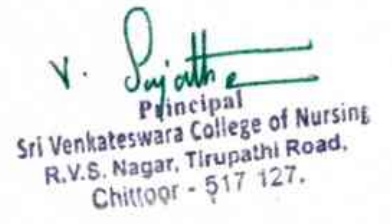 V. Sujatha
Principal
Sri Venkateswara College of Nursing
R.V.S. Nagar, Tirupathi Road,
Chittoor - 517 127.